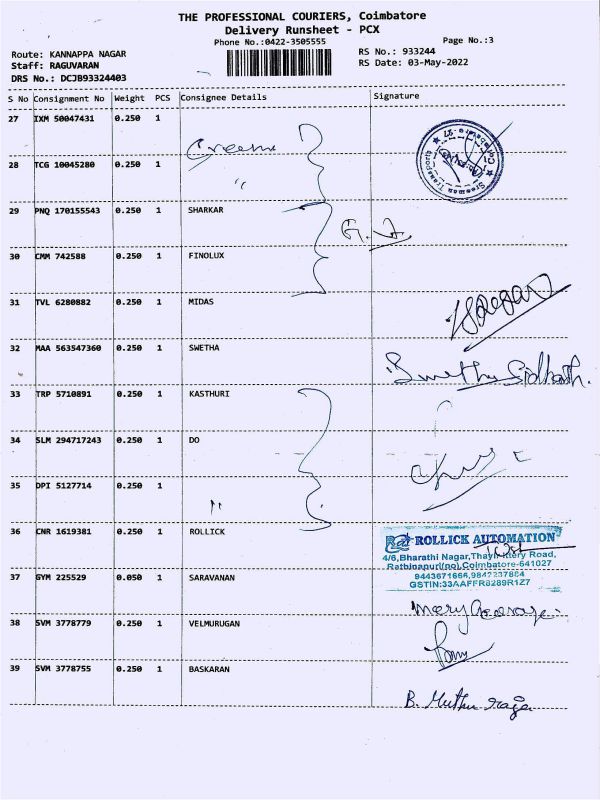 THE PROFESSIONAL COURIERS, Coimbatore
Delivery Runsheet - PCX
Phone No.:0422-3505555
Page No.:3
Route: KANNAPPA NAGAR
RS No.: 933244
Staff: RAGUVARAN
RS Date: 03-May-2022
DRS No.: DCJB93324403
S No Consignment No Weight PCS Consignee Details Signature
27 IXM 50047431 0.250 1
28 TCG 10045280 0.250 1
29 PNQ 170155543 0.250 1 SHARKAR
30 CMM 742588 0.250 1 FINOLUX
31 TVL 6280882 0.250 1 MIDAS
32 MAA 563547360 0.250 1 SWETHA
Swetha Sidharth.
33 TRP 5710891 0.250 1 KASTHURI
34 SLM 294717243 0.250 1 DO
35 DPI 5127714 0.250 1
36 CNR 1619381 0.250 1 ROLLICK
ROLLICK AUTOMATION
4/6,Bharathi Nagar, Road,
Rathinapuri(po),Coimbatore-641027
9443671666,9842237884
GSTIN:33AAFFR8289R1Z7
37 GYM 225529 0.050 1 SARAVANAN
38 SVM 3778779 0.250 1 VELMURUGAN
39 SVM 3778755 0.250 1 BASKARAN
B. Muthu raja